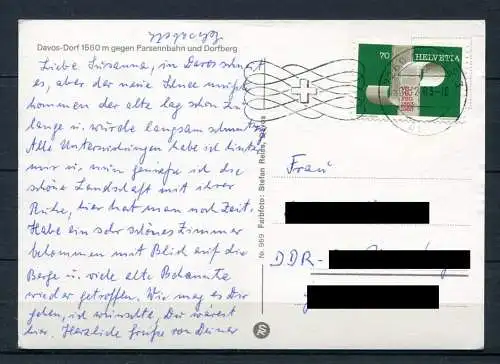 Davos-Dorf 1560 m gegen Parsennbahn und Dorfberg
Liebe Susanna, in Davos schneit
es, aber der neue Schnee mußte
kommen der alte lag schon zu
lange u. wurde langsam schmutzig
Alle Untersuchungen habe ich hinter
mir u. nun genieße ich die
schöne Landschaft mit ihrer
Ruhe, hier hat man noch Zeit.
Habe ein sehr schönes Zimmer
bekommen mit Blick auf die
Berge u. viele alte Bekannte
wieder getroffen. Wie mag es Dir
gehen, ich wünschte, Du wärest
hier. Herzliche Grüße von Deiner
Nr. 969 Farbfoto: Stefan Reiss, Davos
70 HELVETIA
Frau
DDR-